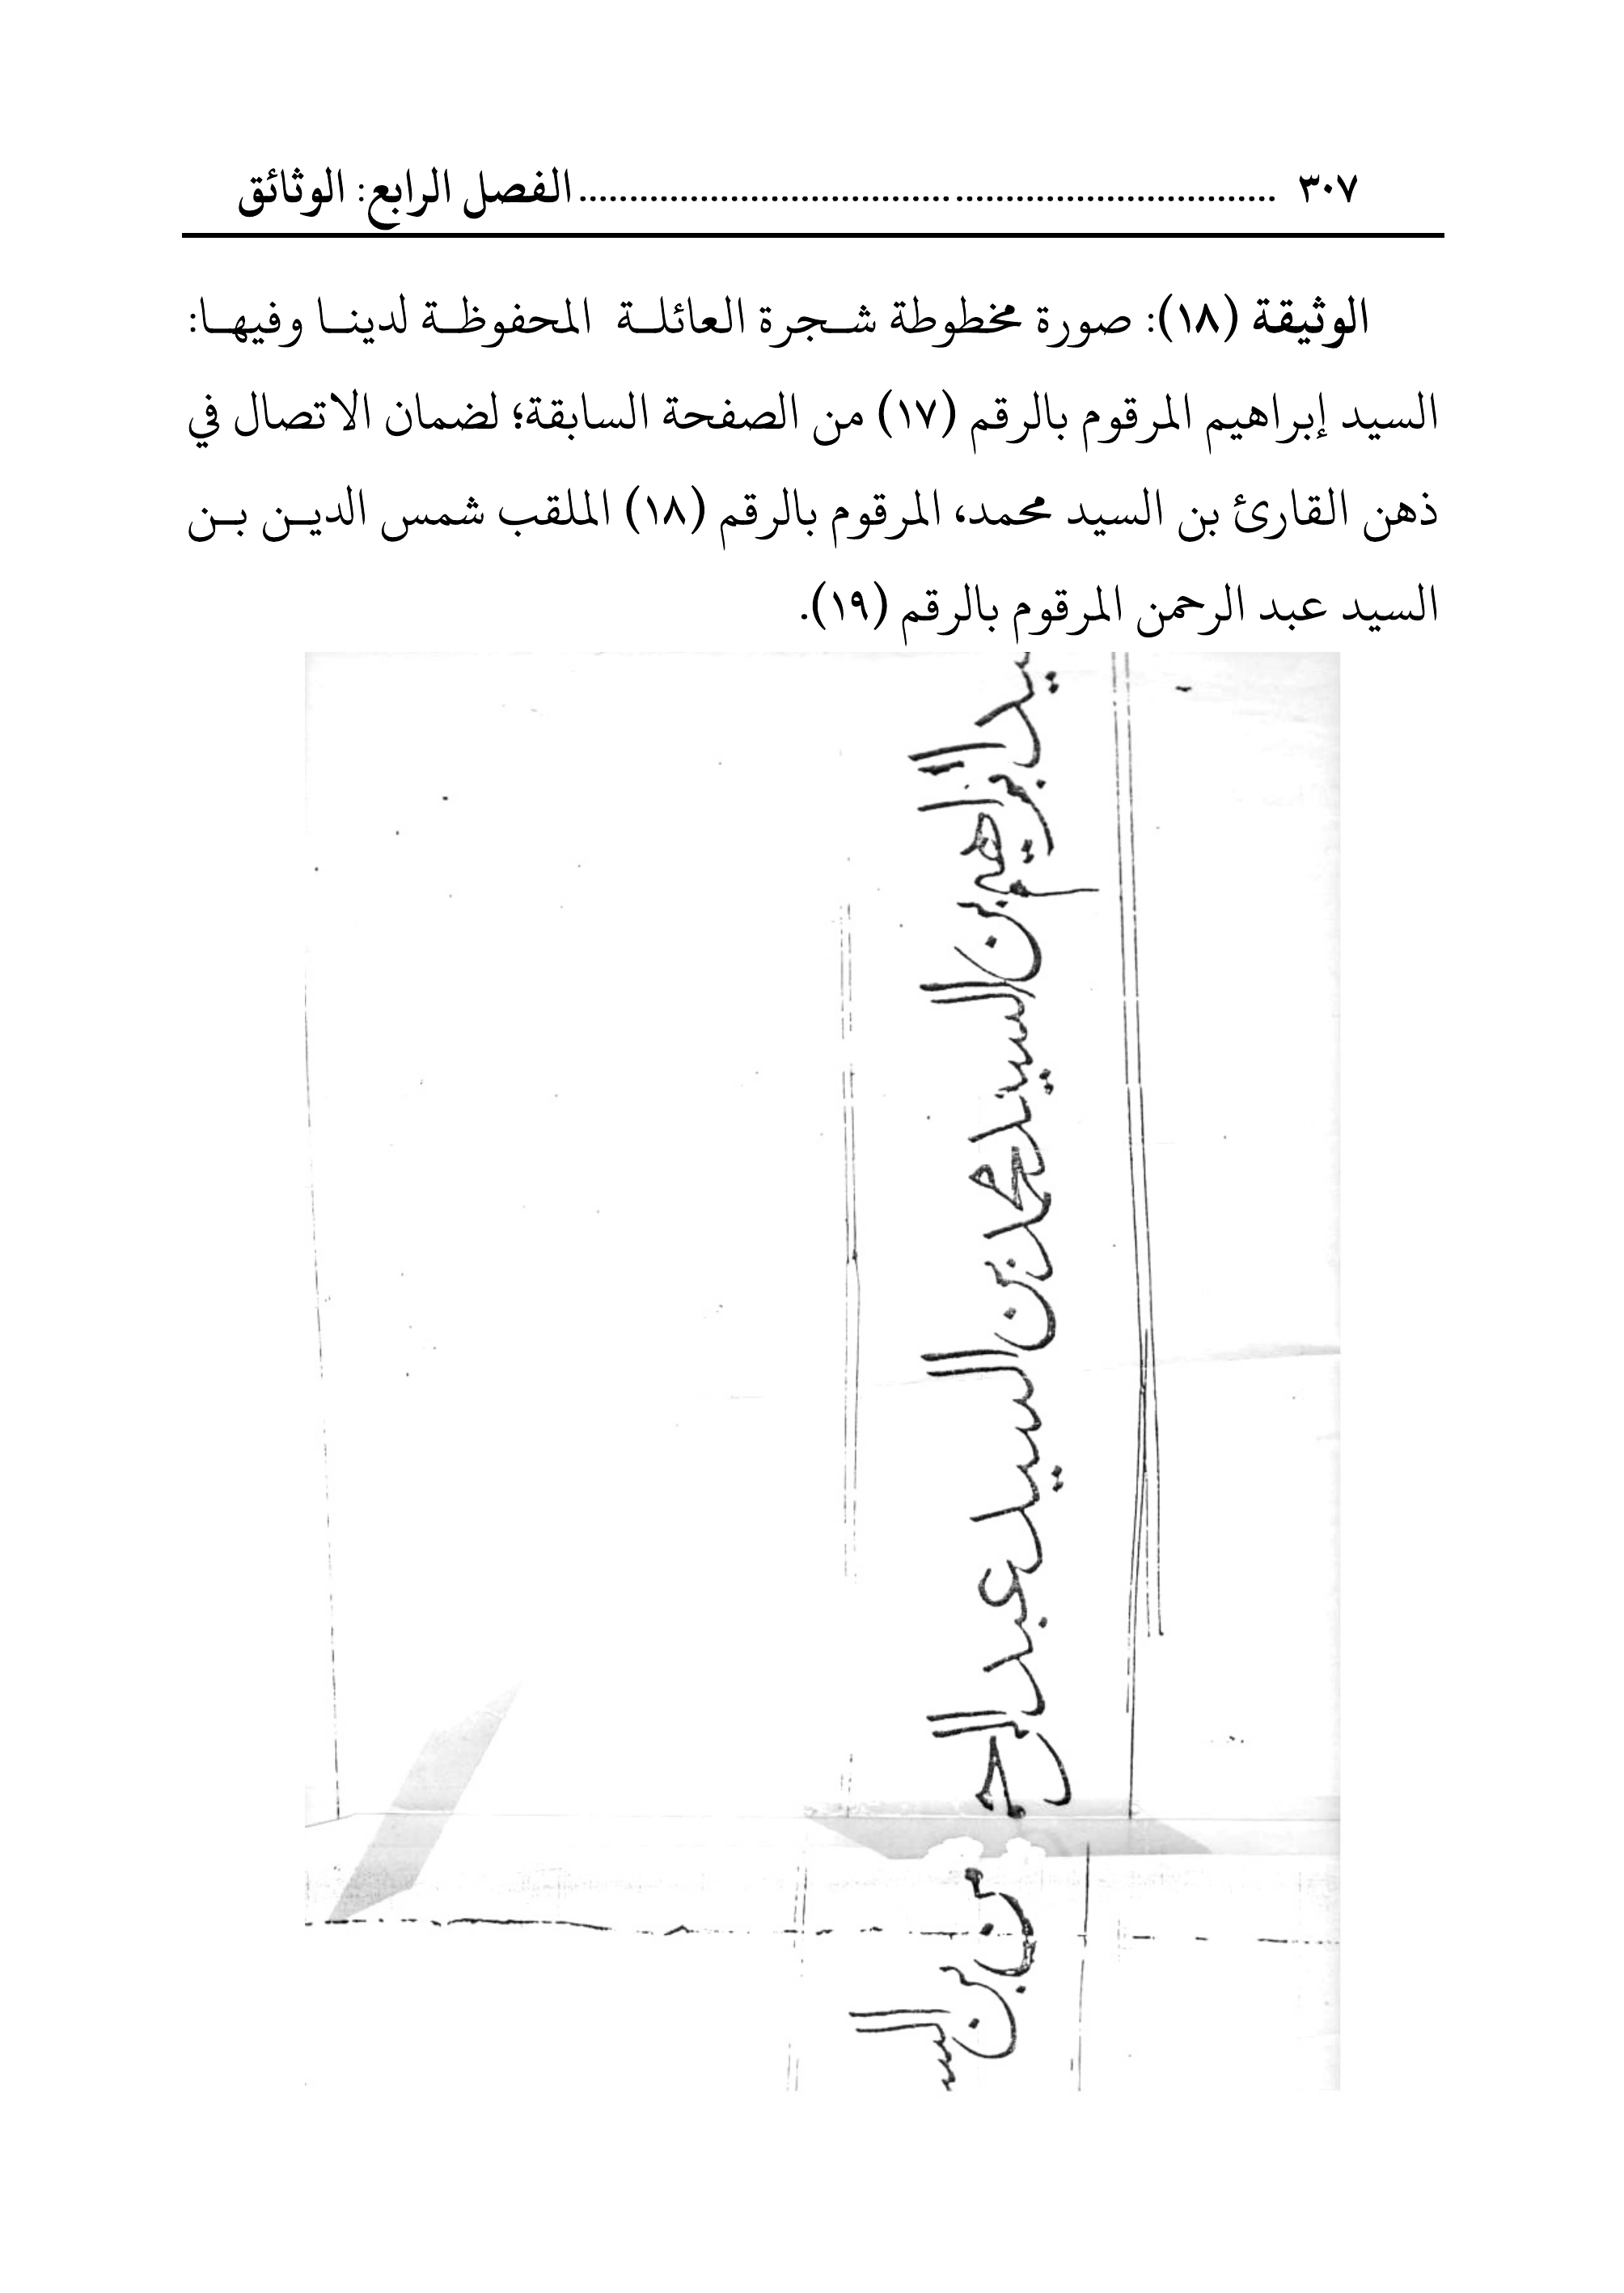 ٣٠٧ ........................................................................ الفصل الرابع: الوثائق
الوثيقة (١٨): صورة مخطوطة شجرة العائلة المحفوظة لدينا وفيها:
السيد إبراهيم المرقوم بالرقم (١٧) من الصفحة السابقة؛ لضمان الاتصال في
ذهن القارئ بن السيد محمد، المرقوم بالرقم (١٨) الملقب شمس الدين بن
السيد عبد الرحمن المرقوم بالرقم (١٩).
يد ابراهيم بن السيد محمد بن السيد عبد الرحمن بن السيـ